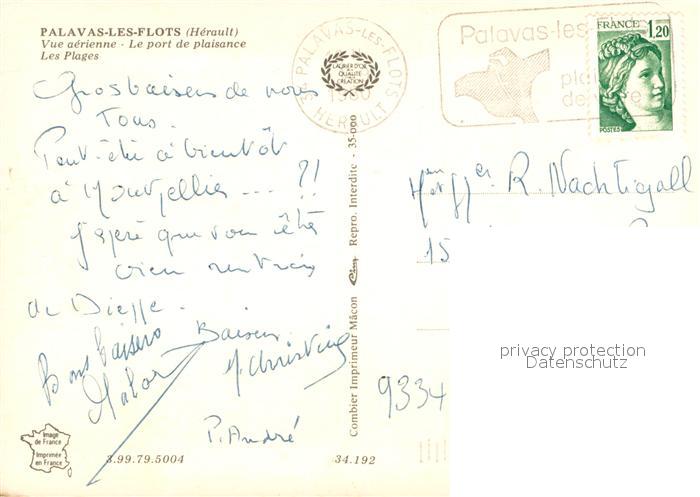 PALAVAS-LES-FLOTS (Hérault)
Vue aérienne - Le port de plaisance
Les Plages
Gros baisers de nous
Tous.
Peut-être à bientôt
à Montpellier --- ?!
J'espère que vous êtes
bien rentrés
de Dieppe.
Bons baisers
Baisers
Christine
P. André
Image
de France
Imprimée
en France
3.99.79.5004
34.192
Combier Imprimeur Mâcon
Cim
Repro. Interdite - 35-000
PALAVAS-LES-FLOTS
HERAULT
LAURIER D'OR
DE LA
QUALITÉ
CREATION
Palavas-les
FRANCE
1,20
POSTES
R. Nachtigall
15
9334
privacy protection
Datenschutz